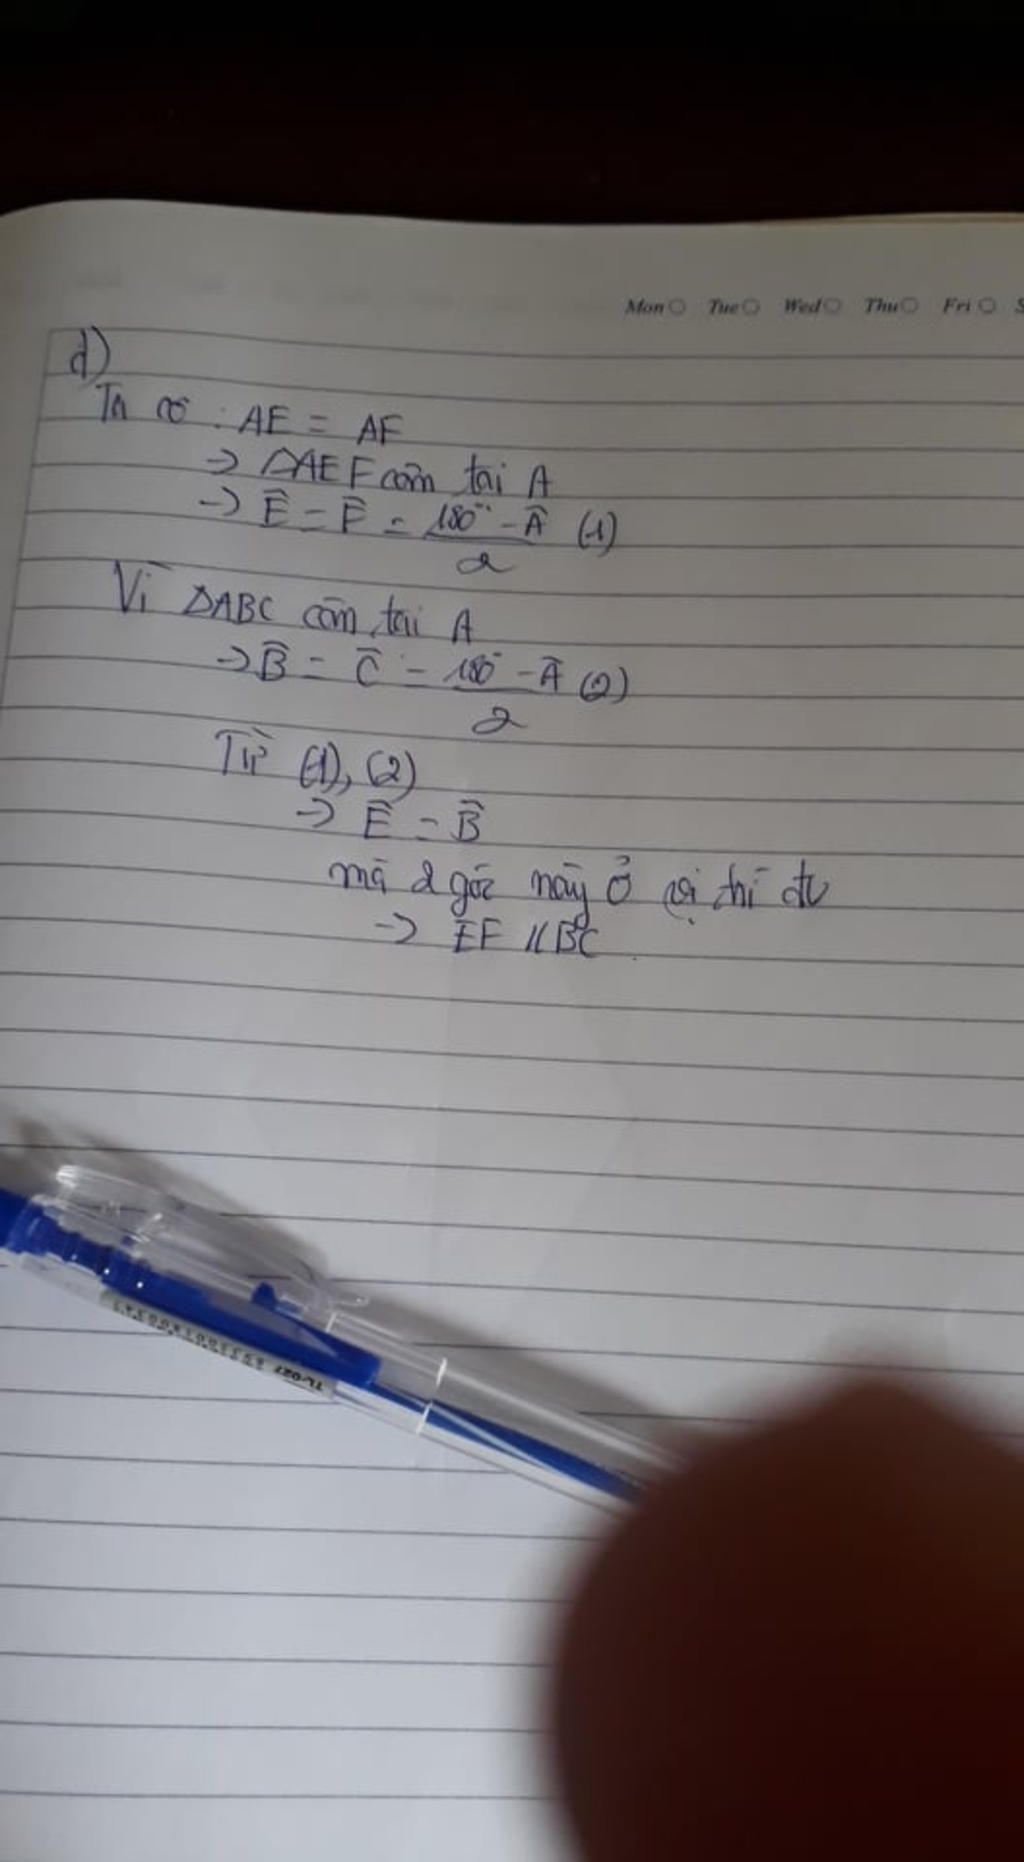 Mon Tue Wed Thu Fri S
d)
Ta có : AE = AF
→ ΔAEF cân tại A
→ Ê = F̂ = (180° - Â)/2 (1)
Vì ΔABC cân tại A
→ B̂ = Ĉ = (180° - Â)/2 (2)
Từ (1), (2)
→ Ê = B̂
mà 2 góc này ở vị trí đv
→ EF // BC
TL-027